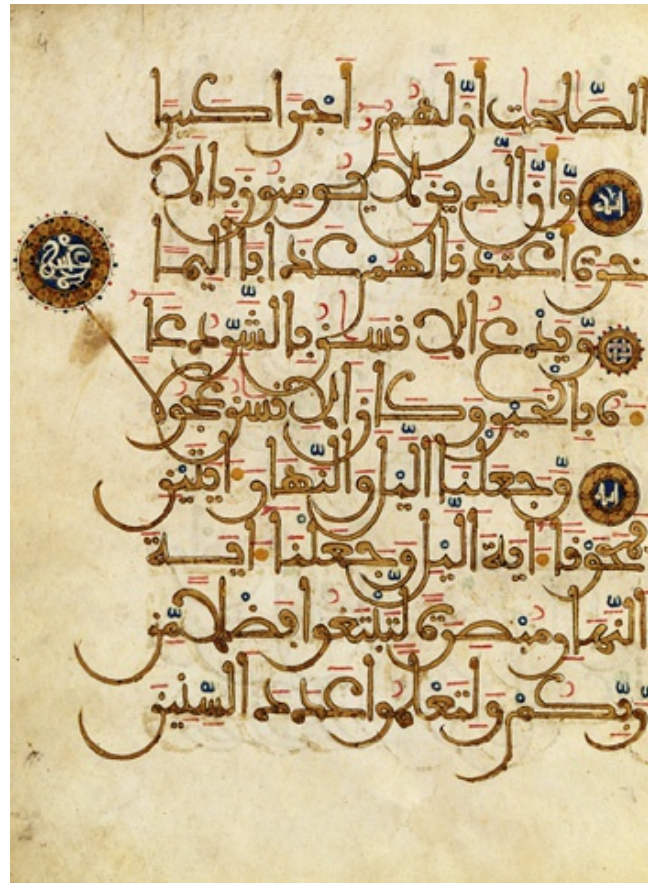 الصّلحت أنّ لهم أجرا كبيرا
وّأنّ الذين لا يومنون بالا
خرة أعتدنا لهم عذابا أليما
وّيدع الانسن بالشّرّ دعا
ءه بالخير وكان الانسن عجولا
وّجعلنا اليّل والنّهار ءايتين
فمحونا ءاية اليّل وجعلنا ءاية
النّهار مبصرة لّتبتغوا فضلا مّن
رّبّكم ولتعلموا عدد السّنين